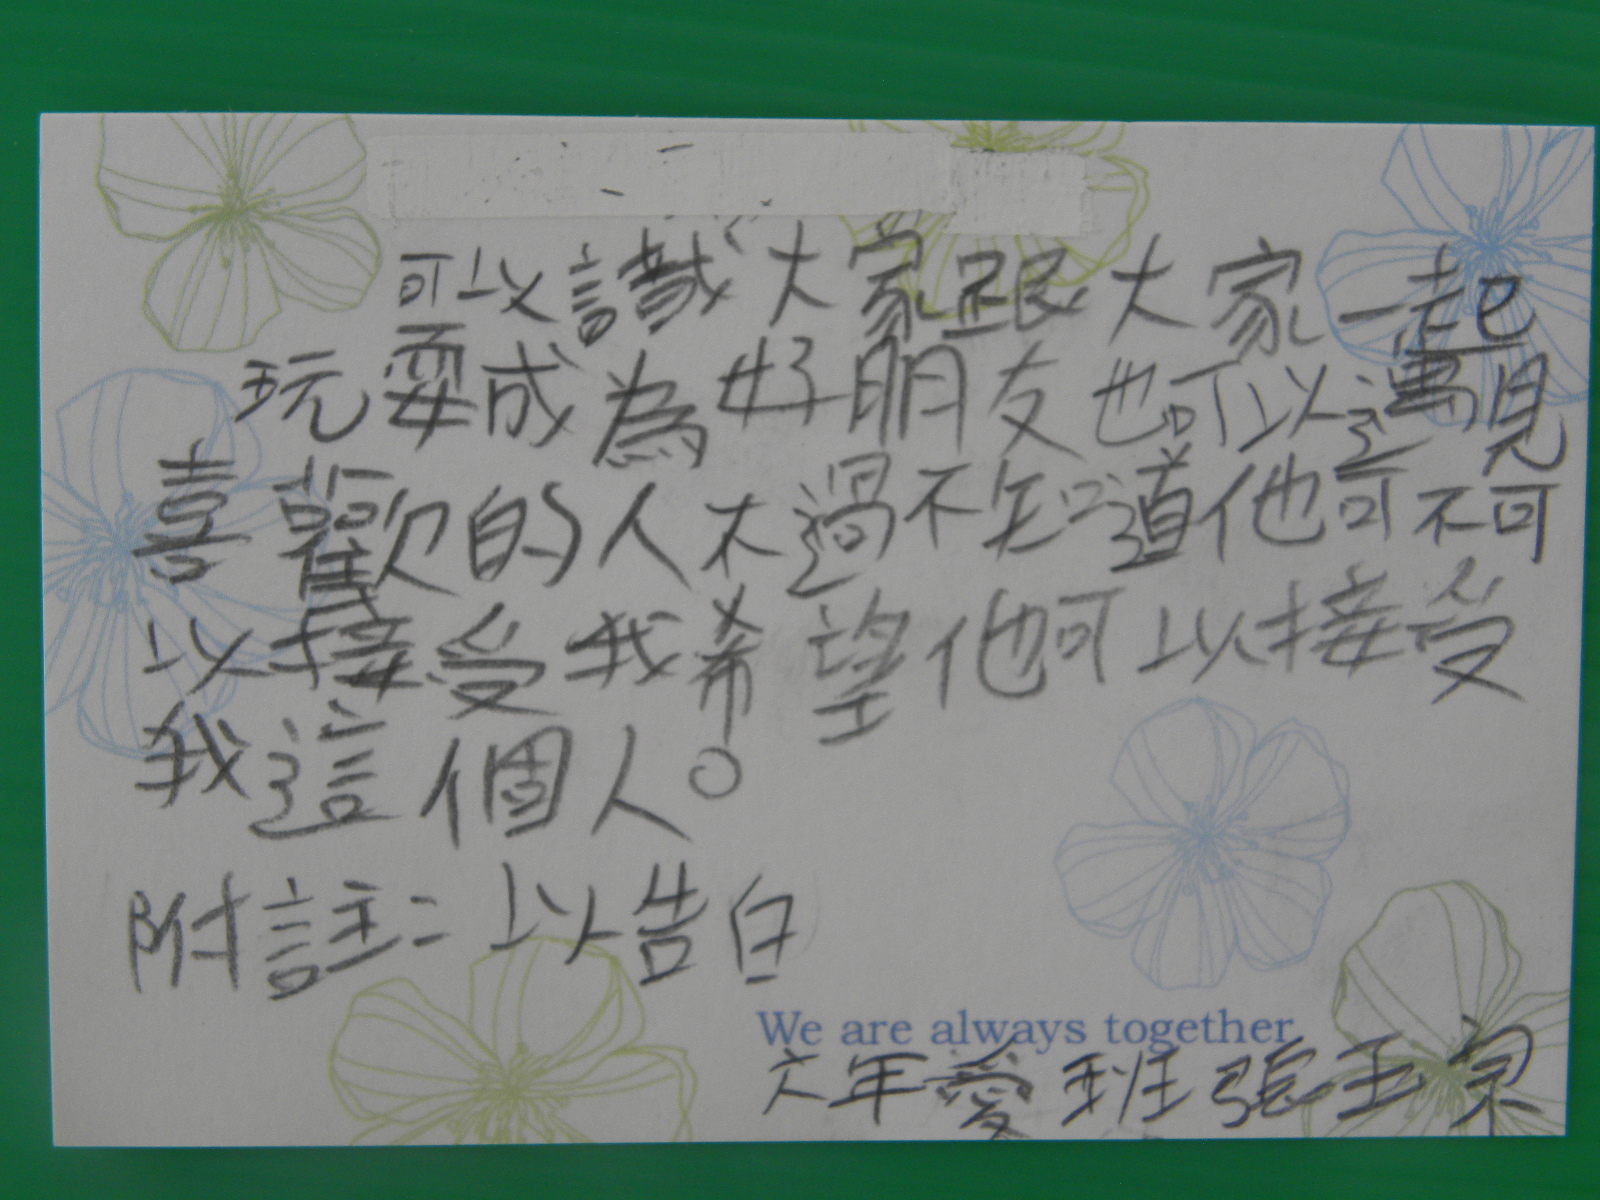 可以識大家跟大家一起
玩耍成為好朋友也可以遇見
喜歡的人不過不知道他可不可
以接受我希望他可以接受
我這個人。
附註：以告白
We are always together.
六年愛班張玉泉